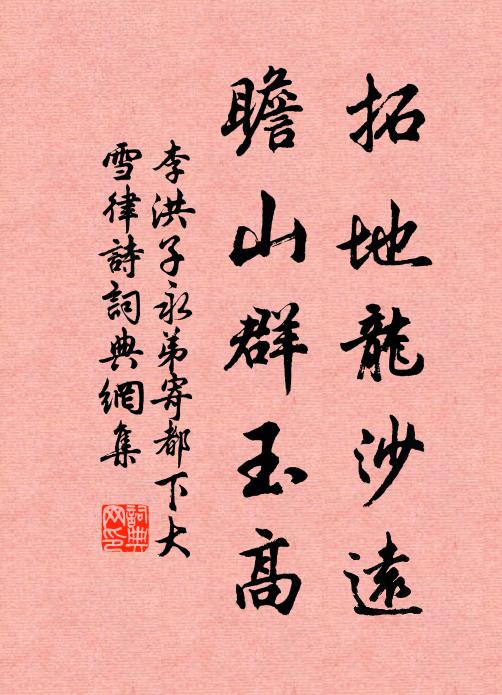 拓地龍沙遠
瞻山群玉高
李洪子永弟寄都下大
雪律詩詞典網集
詞典网印